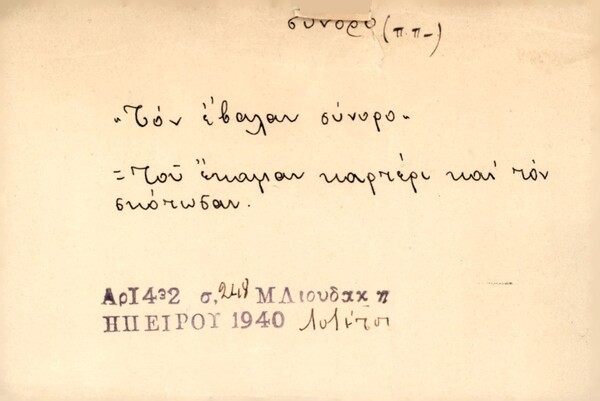 σύνορο (π.π-)
"Τὸν ἔβαλαν σύνορο"
= Τοῦ ἔκαμαν καρτέρι καὶ τὸν
σκότωσαν.
Αρ1432 σ, 248 Μ Λιουδακη
ΗΠΕΙΡΟΥ 1940